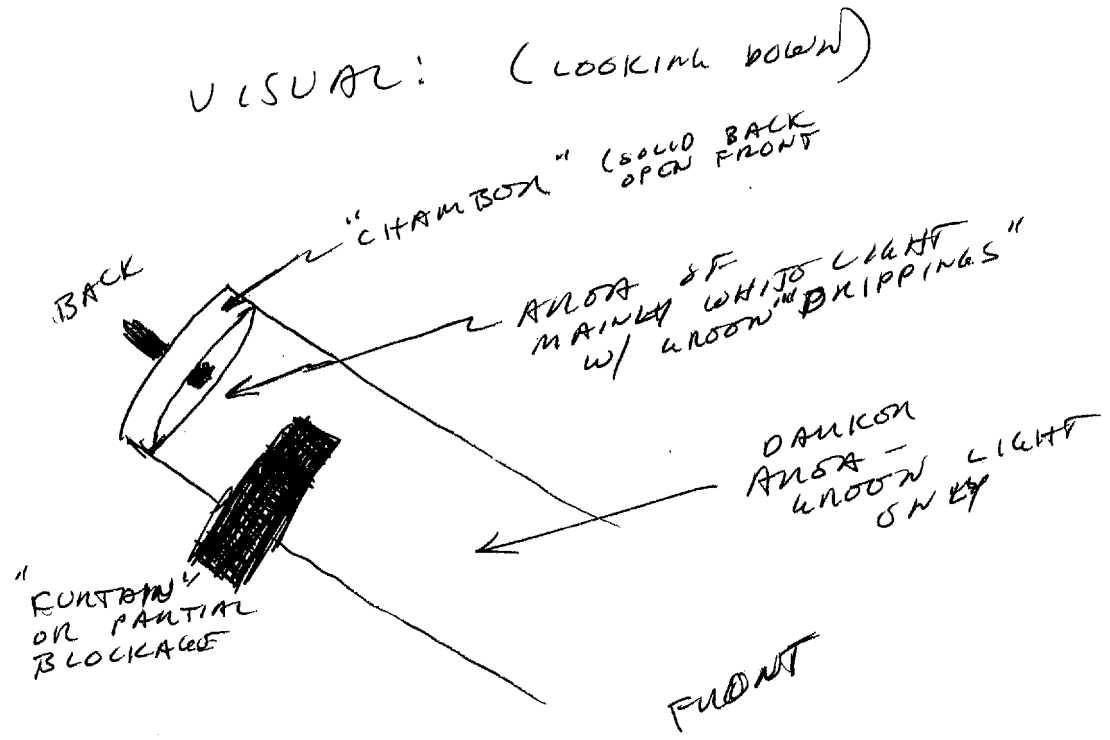 VISUAL: (LOOKING DOWN)
"CHAMBER" (SOLID BACK
OPEN FRONT
BACK
AREA OF
MAINLY WHITE LIGHT
W/ GREEN "DRIPPINGS"
DARKER
AREA —
GREEN LIGHT
ONLY
"CURTAIN"
OR PARTIAL
BLOCKAGE
FRONT